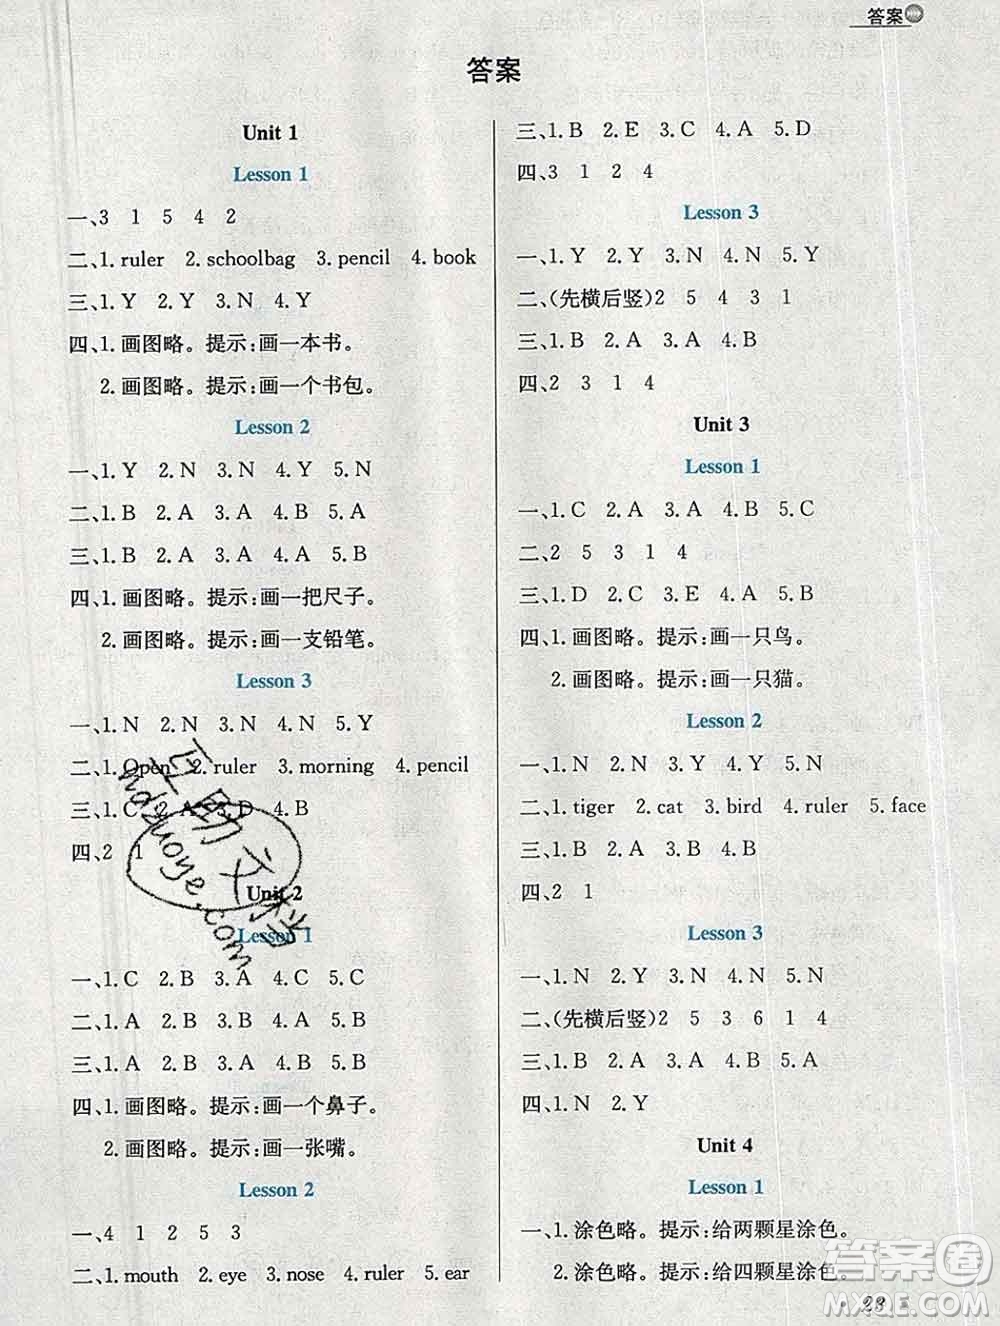 答案
答案
Unit 1
Lesson 1
一、3 1 5 4 2
二、1. ruler 2. schoolbag 3. pencil 4. book
三、1. Y 2. Y 3. N 4. Y
四、1. 画图略。提示:画一本书。
2. 画图略。提示:画一个书包。
Lesson 2
一、1. Y 2. N 3. N 4. Y 5. N
二、1. B 2. A 3. A 4. B 5. A
三、1. B 2. A 3. B 4. A 5. B
四、1. 画图略。提示:画一把尺子。
2. 画图略。提示:画一支铅笔。
Lesson 3
一、1. N 2. N 3. N 4. N 5. Y
二、1. Open 2. ruler 3. morning 4. pencil
三、1. C 2. A 3. D 4. B
四、2 1
Unit 2
Lesson 1
一、1. C 2. B 3. A 4. C 5. C
二、1. A 2. B 3. A 4. B 5. B
三、1. A 2. B 3. A 4. A 5. B
四、1. 画图略。提示:画一个鼻子。
2. 画图略。提示:画一张嘴。
Lesson 2
一、4 1 2 5 3
二、1. mouth 2. eye 3. nose 4. ruler 5. ear
三、1. B 2. E 3. C 4. A 5. D
四、3 1 2 4
Lesson 3
一、1. Y 2. Y 3. N 4. N 5. Y
二、(先横后竖)2 5 4 3 1
三、1. B 2. A 3. A 4. B
四、2 3 1 4
Unit 3
Lesson 1
一、1. C 2. A 3. A 4. B 5. C
二、2 5 3 1 4
三、1. D 2. C 3. E 4. A 5. B
四、1. 画图略。提示:画一只鸟。
2. 画图略。提示:画一只猫。
Lesson 2
一、1. N 2. N 3. Y 4. Y 5. N
二、1. tiger 2. cat 3. bird 4. ruler 5. face
三、1. B 2. A 3. B 4. B
四、2 1
Lesson 3
一、1. N 2. Y 3. N 4. N 5. Y
二、(先横后竖)2 5 3 6 1 4
三、1. B 2. A 3. B 4. A 5. B
四、1. N 2. Y
Unit 4
Lesson 1
一、1. 涂色略。提示:给两颗星涂色。
2. 涂色略。提示:给四颗星涂色。
23
答案圈
MXQE.COM
hdzuoye.com